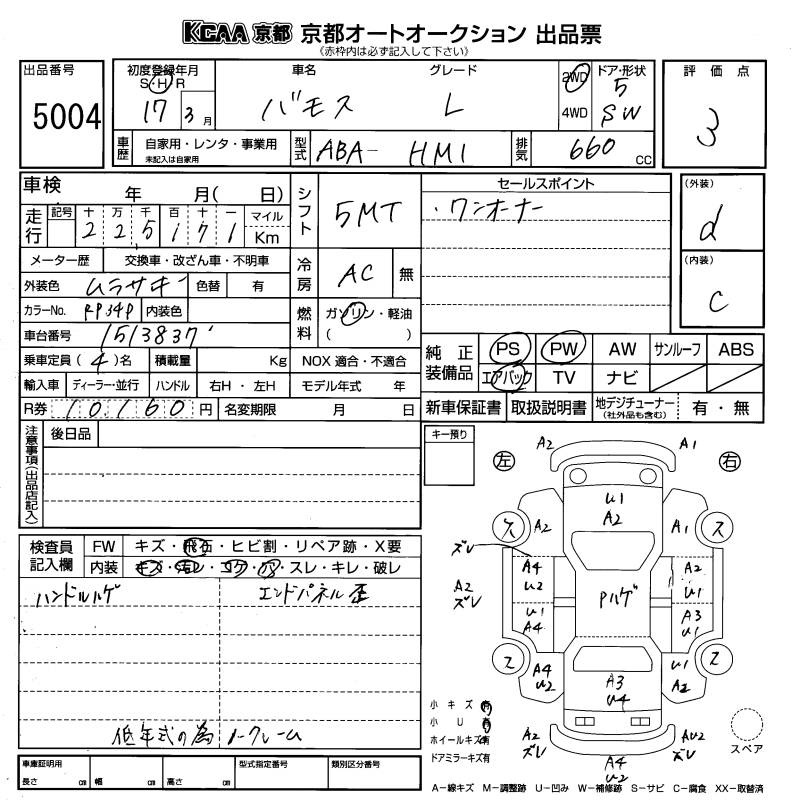 KCAA 京都 京都オートオークション 出品票
《赤枠内は必ず記入して下さい》
出品番号
5004
初度登録年月
S・H・R
17 3月
車名
バモス
グレード
L
2WD
4WD
ドア・形状
5
SW
評価点
3
車歴
自家用・レンタ・事業用
未記入は自家用
型式
ABA- HM1
排気
660 CC
車検 年 月( 日)
走行
記号 十 万 千 百 十 一 マイル
2 2 5 1 7 1 Km
シフト
5MT
セールスポイント
・ワンオーナー
(外装)
d
(内装)
C
メーター歴 交換車・改ざん車・不明車
外装色 ムラサキ 色替 有
冷房
AC 無
カラーNo. RP34P 内装色
車台番号 1513837
燃料
ガソリン・軽油
( )
乗車定員(4)名 積載量 Kg NOX適合・不適合
輸入車 ディーラー・並行 ハンドル 右H・左H モデル年式 年
R券 10,160円 名変期限 月 日
純正装備品
PS PW AW サンルーフ ABS
エアバック TV ナビ
新車保証書 取扱説明書 地デジチューナー
(社外品も含む) 有・無
注意事項(出品店記入)
後日品
キー預り
検査員記入欄
FW キズ・飛石・ヒビ割・リペア跡・X要
内装 キズ・汚レ・コゲ・穴・スレ・キレ・破レ
ハンドルハゲ エンドパネル歪
低年式の為ノークレーム
左 右
A2 A1
U1
A2
ス A2 A1 ス
ズレ
A4 A2
U2 U1
A2
ズレ
Pハゲ
U1 A3
A4 U1
ス A4 U1 ス
U2 A2
A3
U4
A2 AU2
ズレ ズレ
A4
U2
小キズ 有
小U 有
ホイールキズ有
ドアミラーキズ有
スペア
車庫証明用 型式指定番号 類別区分番号
長さ cm 幅 cm 高さ cm
A-線キズ M-調整跡 U-凹み W-補修跡 S-サビ C-腐食 XX-取替済